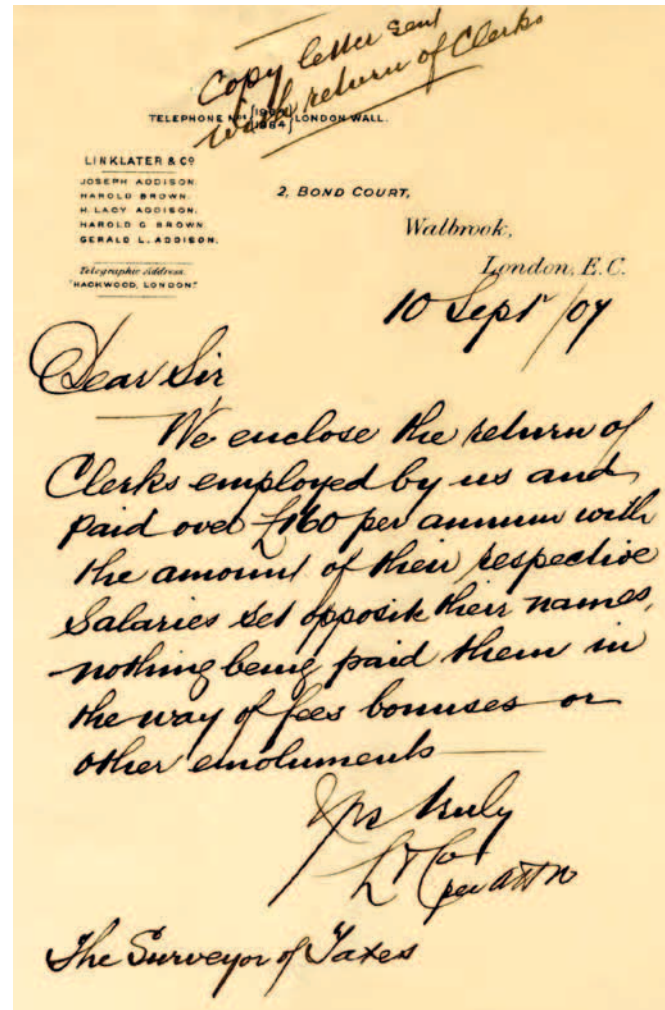 Copy letter sent
with return of Clerks
TELEPHONE Nos LONDON WALL.
LINKLATER & Co
JOSEPH ADDISON.
HAROLD BROWN.
H. LACY ADDISON.
HAROLD G BROWN.
GERALD L. ADDISON.
Telegraphic Address.
"HACKWOOD, LONDON."
2, BOND COURT,
Walbrook,
London, E.C.
10 Sept /07
Dear Sir,
We enclose the return of
Clerks employed by us and
paid over £160 per annum with
the amount of their respective
Salaries set opposite their names,
nothing being paid them in
the way of fees bonuses or
other emoluments
Yrs truly
L & Co
per
The Surveyor of Taxes